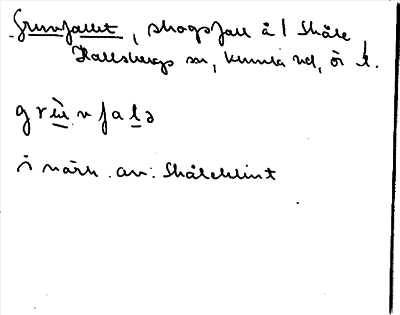 Gruvfallet, skogsfall å / Skåle
Hallsbergs sn, Kumla hd, Ör l.
grùvfalə
i närh. av: Skåleklint